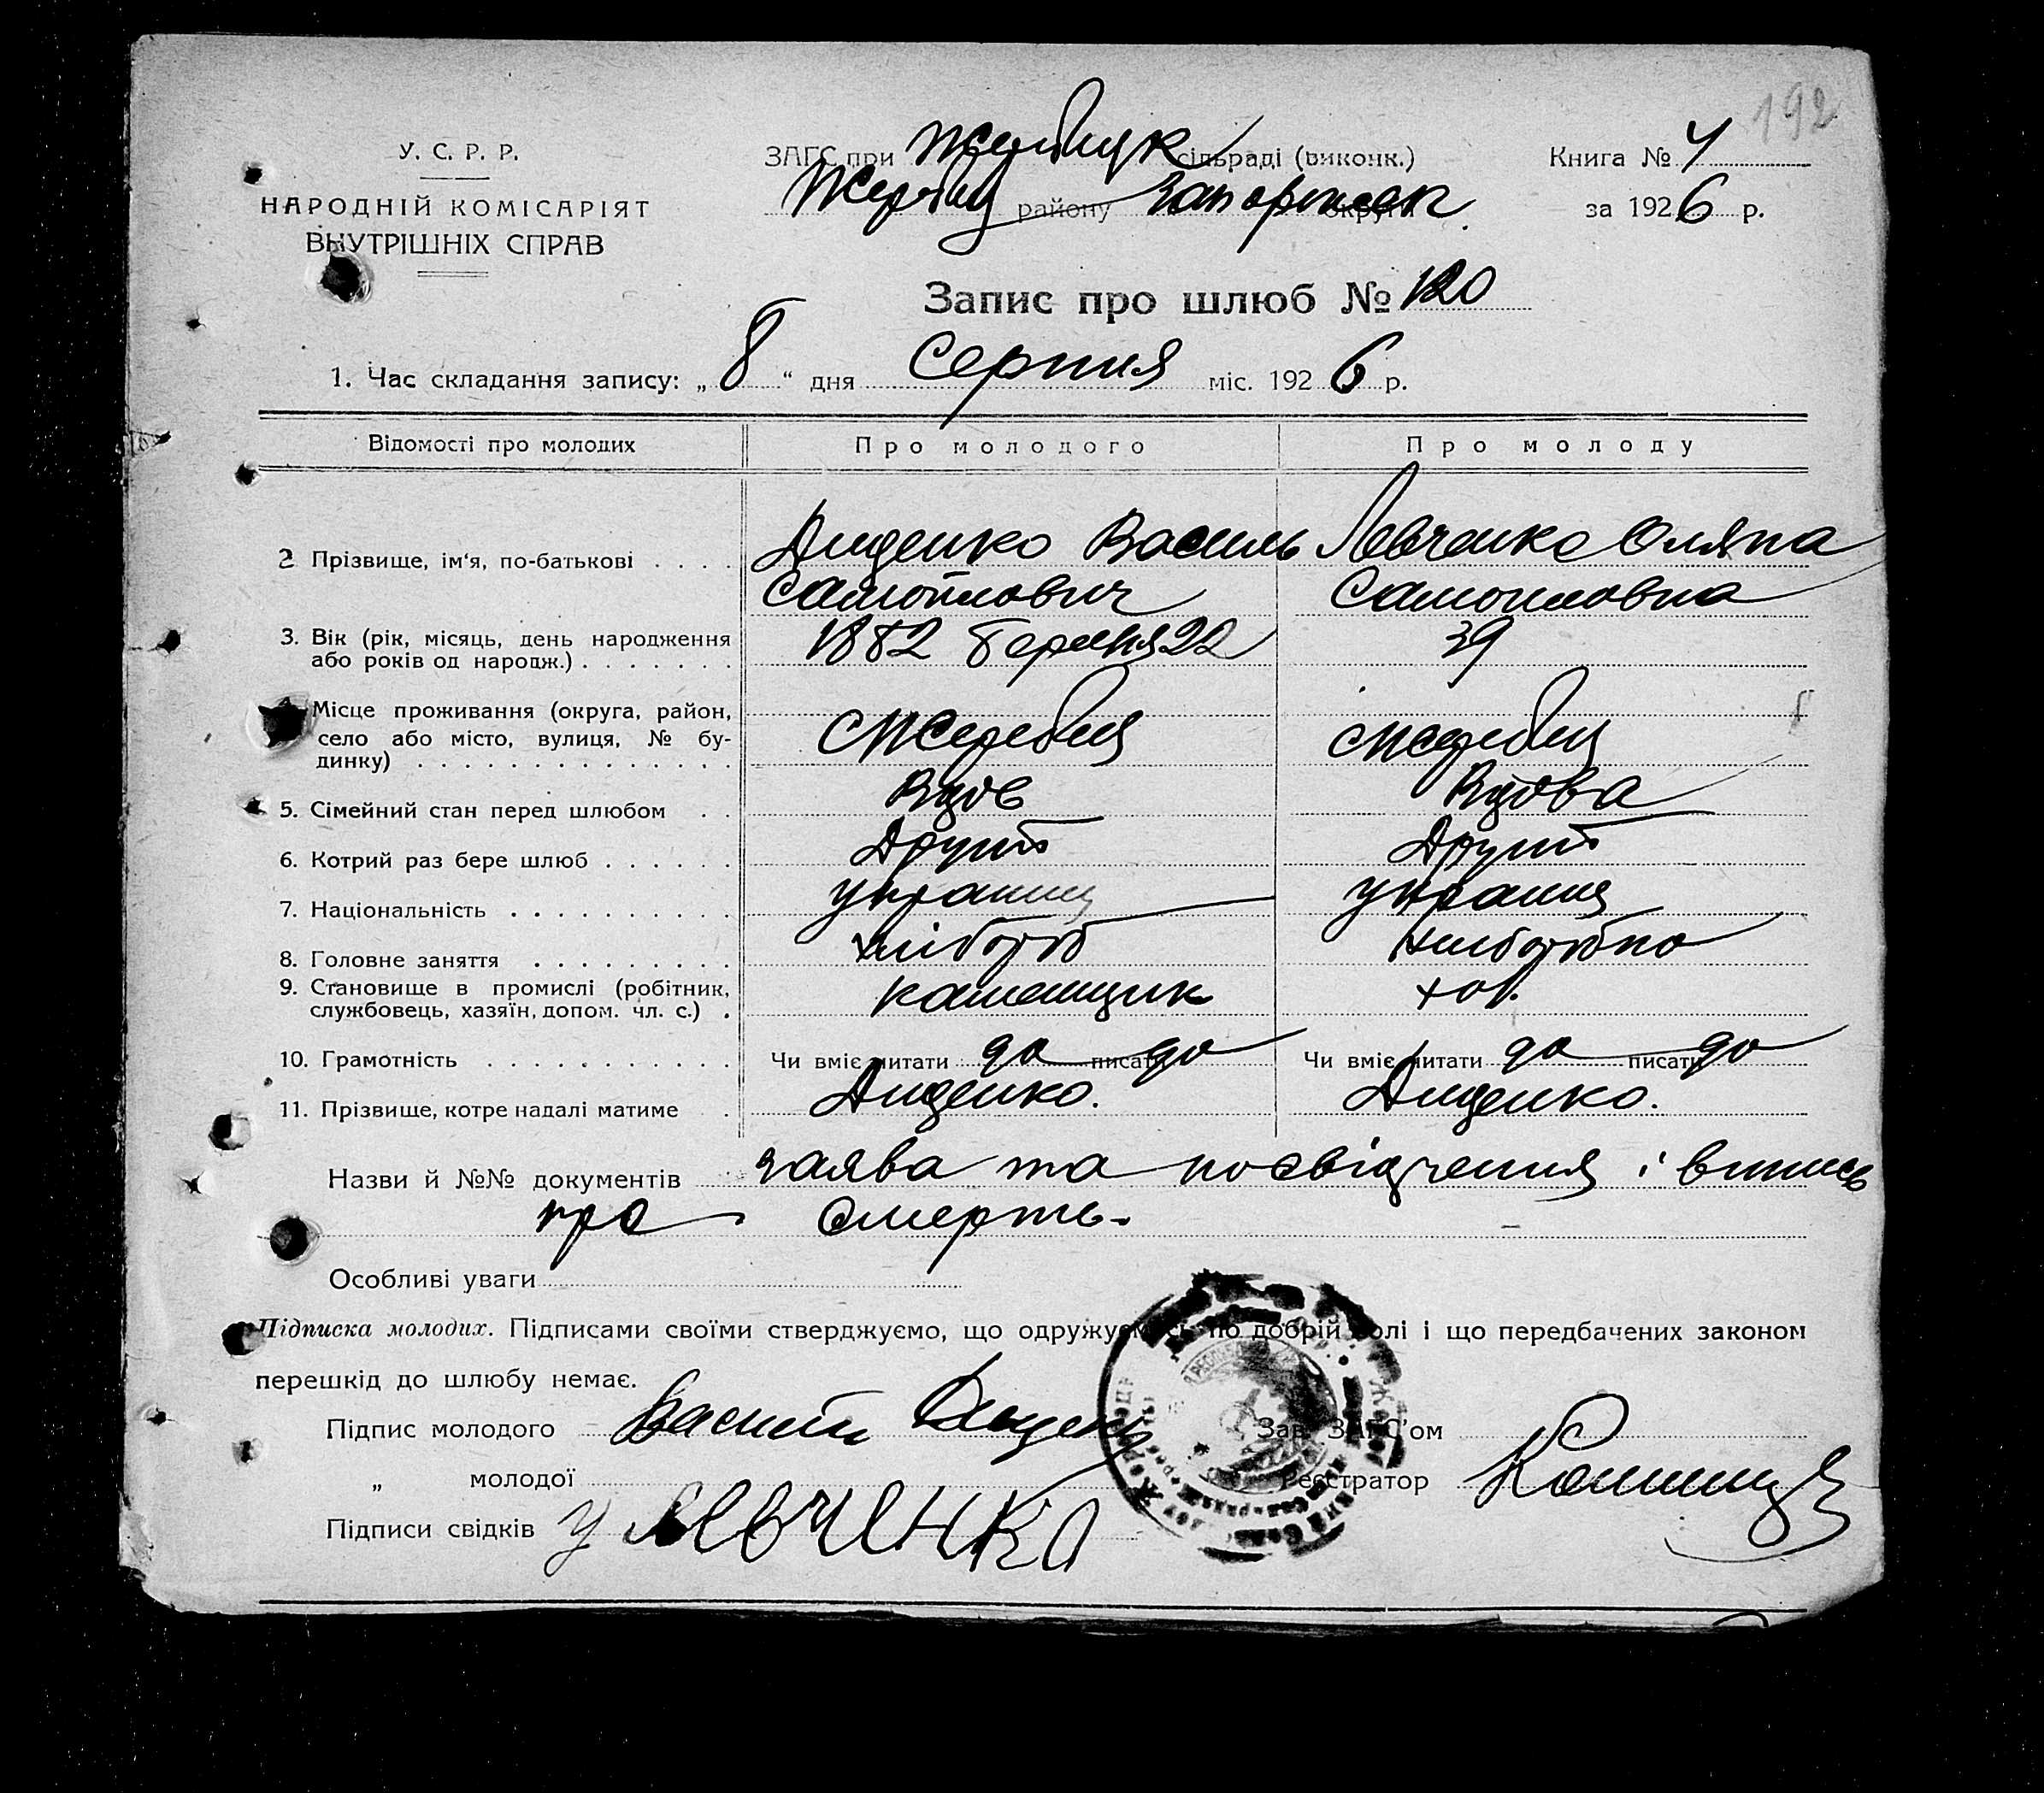 192
У. С. Р. Р.
НАРОДНІЙ КОМІСАРІЯТ
ВНУТРІШНІХ СПРАВ
ЗАГС при сільраді (виконк.)
району Запоріжск округи
Книга № 4
за 1926 р.
Запис про шлюб № 120
1. Час складання запису: „8“ дня Серпня міс. 1926 р.
Відомості про молодих Про молодого Про молоду
2 Прізвище, ім‘я, по-батькові . . . . Дищенко Василь Левченко Оляна
Самойлович Самоиловна
3. Вік (рік, місяць, день народження або років од народж.) . . . . . . . 1882 березня 22 39
Місце проживання (округа, район, село або місто, вулиця, № будинку) . . . . . . . . . . . . . . с Жеребец с Жеребец
5. Сімейний стан перед шлюбом . . Вдов Вдова
6. Котрий раз бере шлюб . . . . . . Другий Другий
7. Національність . . . . . . . . . . україн україн
8. Головне заняття . . . . . . . . . хлібороб хлибороб
9. Становище в промислі (робітник, службовець, хазяїн, допом. чл. с.) . каменщик хоз.
10. Грамотність . . . . . . . . . . . Чи вміє читати да писати да Чи вміє читати да писати да
11. Прізвище, котре надалі матиме . Дищенко. Дищенко.
Назви й №№ документів заява та посвідчення і впись
про смерть.
Особливі уваги
Підписка молодих. Підписами своїми стверджуємо, що одружуємось по добрій волі і що передбачених законом
перешкід до шлюбу немає.
Підпис молодого Василь Зав. ЗАГС’ом
„ молодої Реєстратор
Підписи свідків У Левченко